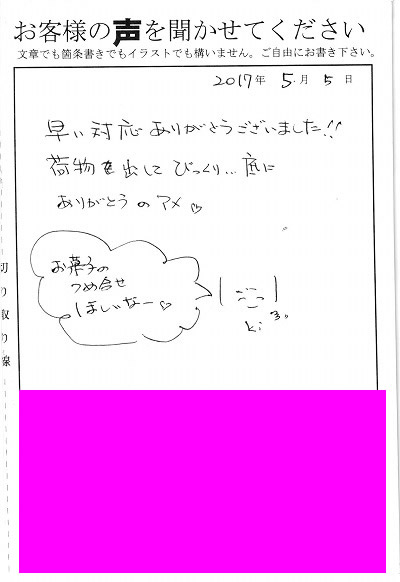 お客様の声を聞かせてください
文章でも箇条書きでもイラストでも構いません。ご自由にお書き下さい。
2017年 5月 5日
早い対応ありがとうございました!!
荷物を出してびっくり…底に
ありがとうのアメ♡
お菓子の
つめ合せ
ほしいなー♡
切り取り線